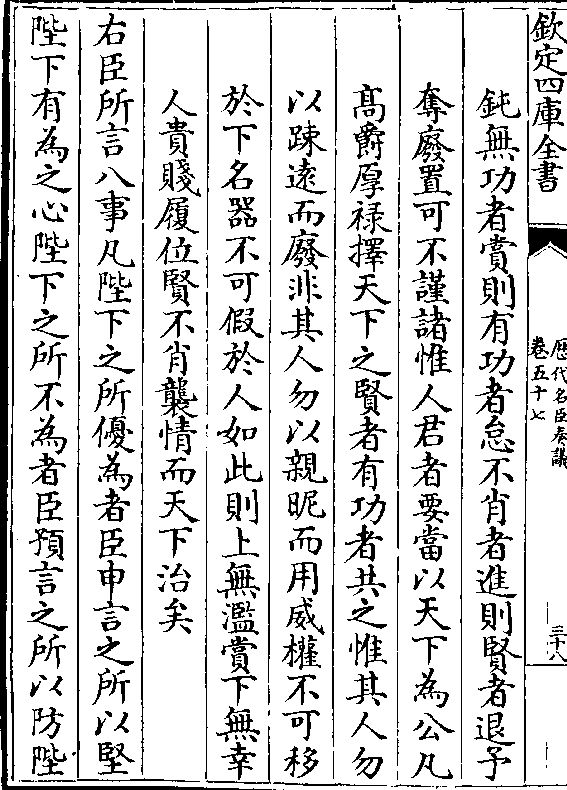 欽定四庫全書
歷代名臣奏議
卷五十七
三十八
鈍無功者賞則有功者怠不肖者進則賢者退予
奪廢置可不謹諸惟人君者要當以天下為公凡
髙爵厚禄擇天下之賢者有功者共之惟其人勿
以踈逺而廢非其人勿以親昵而用威權不可移
於下名器不可假於人如此則上無濫賞下無幸
人貴賤履位賢不肖襲情而天下治矣
右臣所言八事凡陛下之所優為者臣申言之所以堅
陛下有為之心陛下之所不為者臣預言之所以防陛